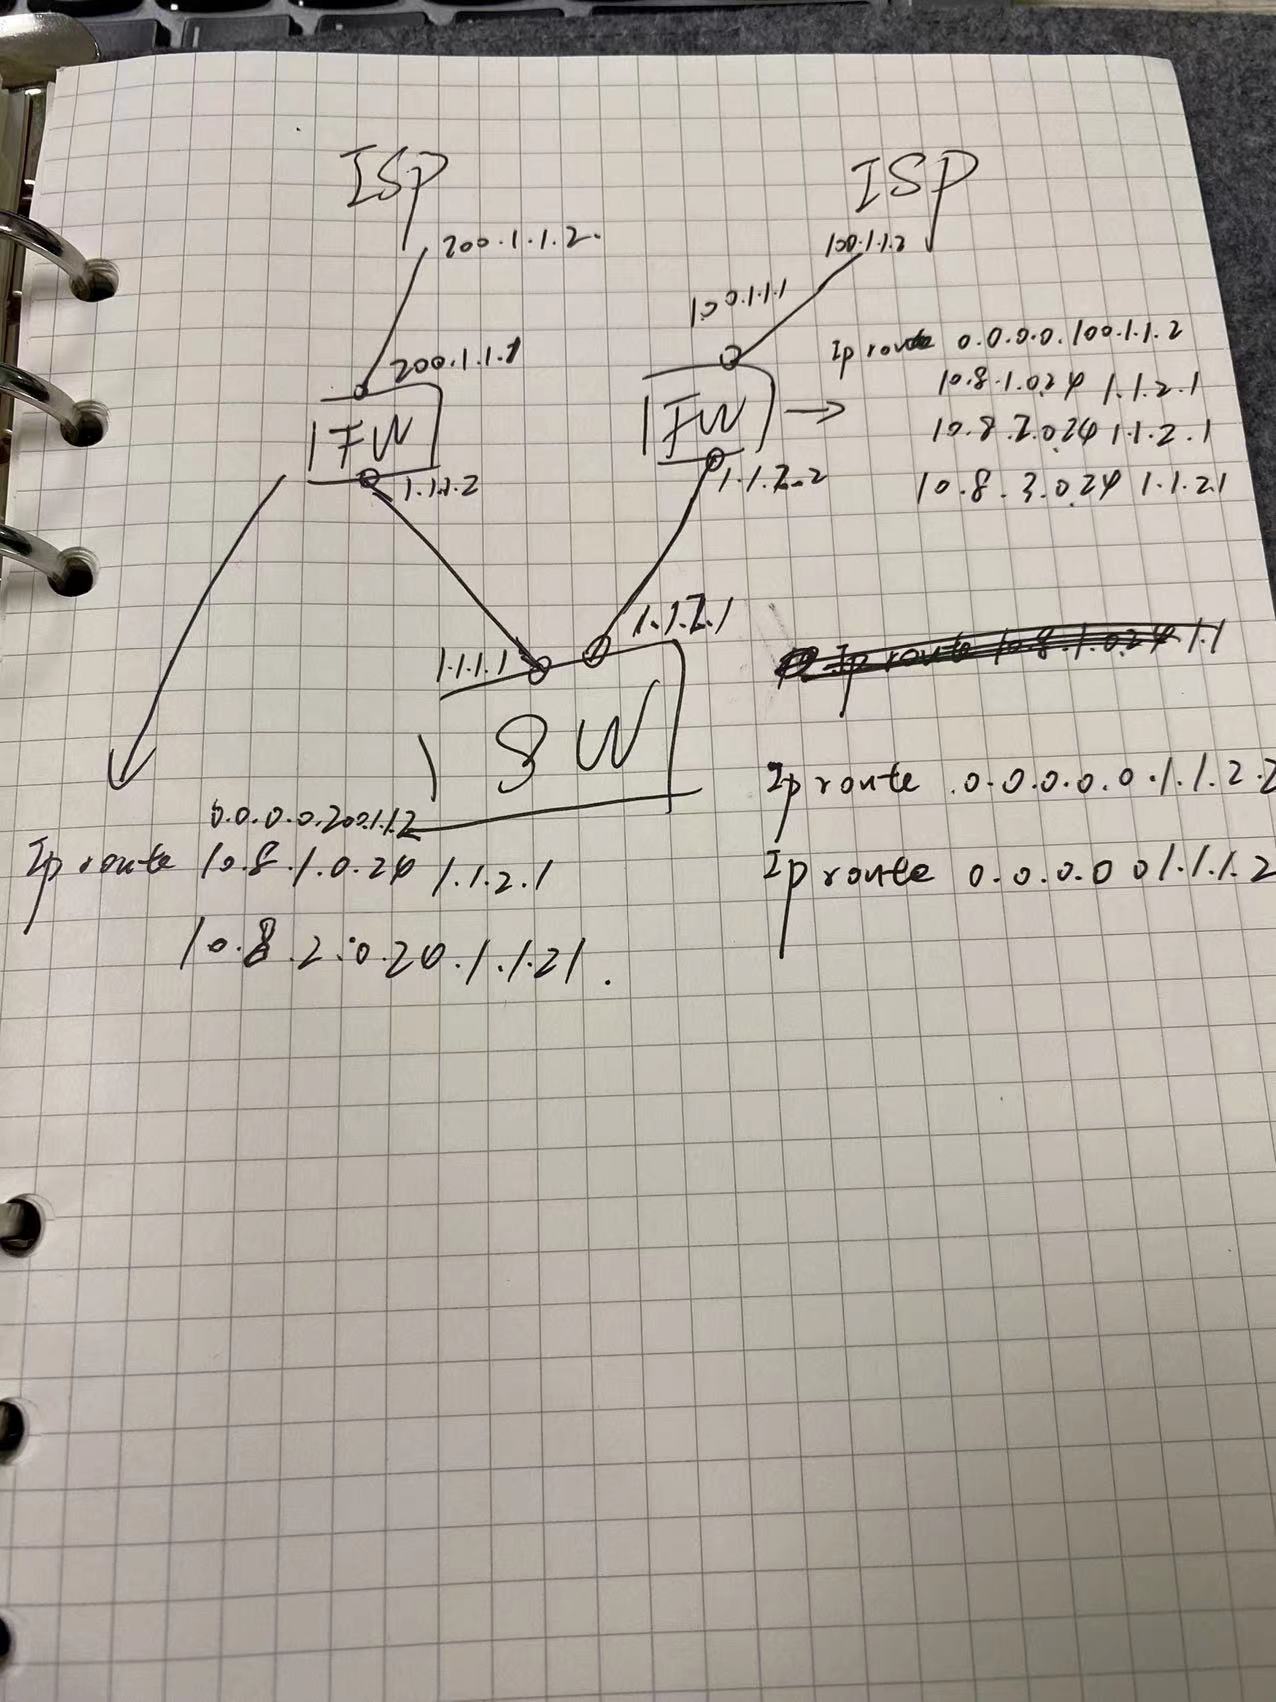 ISP
ISP
200.1.1.2.
100.1.1.2
100.1.1.1
200.1.1.1
Ip route 0.0.0.0.100.1.1.2
10.8.1.024 1.1.2.1
10.8.2.024 1.1.2.1
10.8.3.024 1.1.21
FW
FW
1.1.1.2
1.1.2.2
1.1.2.1
1.1.1.1
Ip route 10.8.1.024 1.1
SW
Ip route .0.0.0.0.0.1.1.2.2
0.0.0.0.200.1.1.2
Ip route 10.8.1.0.24 1.1.2.1
Ip route 0.0.0.0 0 1.1.1.2
10.8.2.0.24.1.1.21.